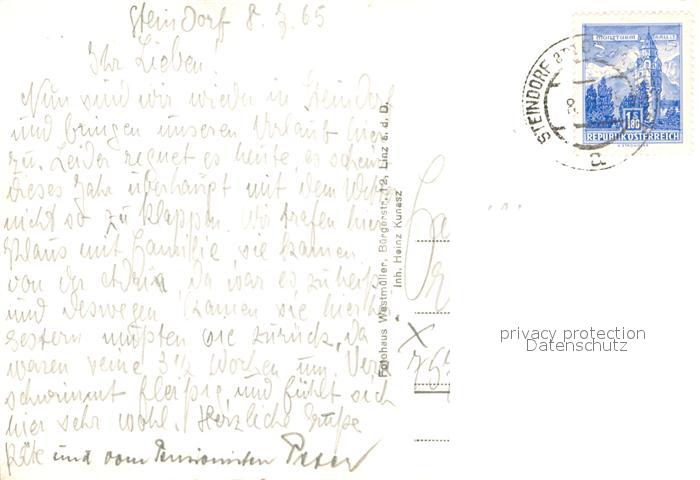 Steindorf 8. 7. 65
Ihr Lieben!
Nun sind wir wieder in Steindorf
und bringen unseren Urlaub hier
zu. Leider regnet es heute, es scheint
dieses Jahr überhaupt mit dem Wetter
nicht so zu klappen. Wir trafen hier
Klaus mit Familie, sie kamen
von der Adria, da war es zu heiß
und deswegen kamen sie hierher
gestern mußten sie zurück, da
waren seine 3 1/2 Wochen um.
schwimmt fleißig und fühlt sich
hier sehr wohl. Herzliche Grüße
Käte und vom Pensionisten Peter
Fotohaus Westmüller, Bürgerstr. 12, Linz a. d. D.
Inh. Heinz Kunasz
MÜNZTURM HALL I. T.
1.80
REPUBLIK ÖSTERREICH
STEINDORF
a
privacy protection
Datenschutz